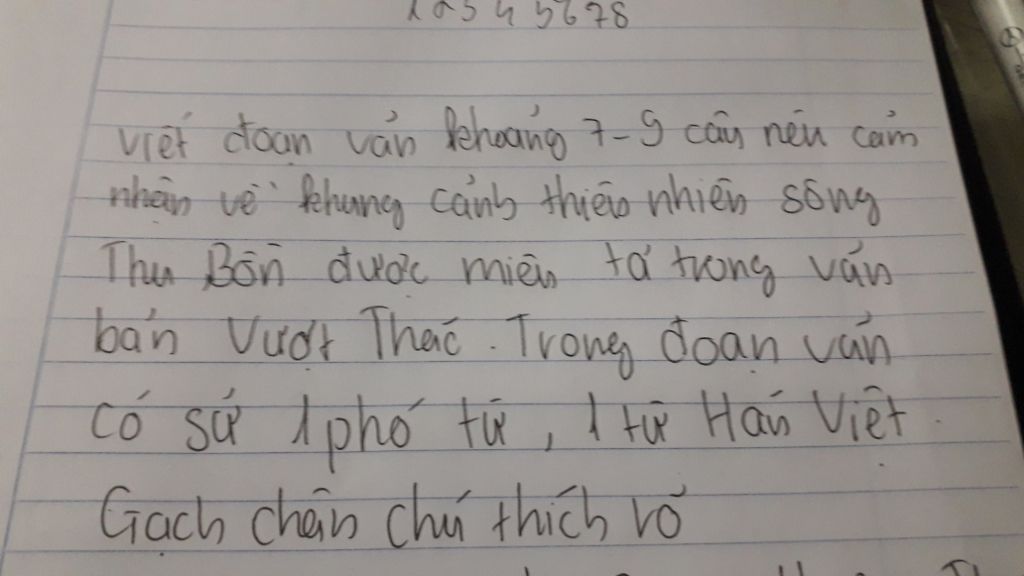 12345678
Viết đoạn văn khoảng 7-9 câu nêu cảm
nhận về khung cảnh thiên nhiên sông
Thu Bồn được miêu tả trong văn
bản Vượt Thác. Trong đoạn văn
có sử 1 phó từ, 1 từ Hán Việt.
Gạch chân chú thích rõ